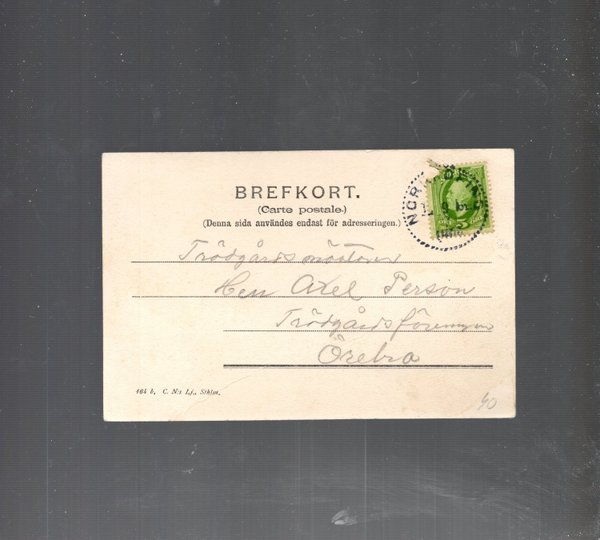 BREFKORT.
(Carte postale.)
(Denna sida användes endast för adresseringen.)
NORRKÖPING
5
Trädgårdsmästaren
Herr Axel Person
Trädgårdsföreningen
Örebro
464 b, C. N:s Lj., Sthlm.
40